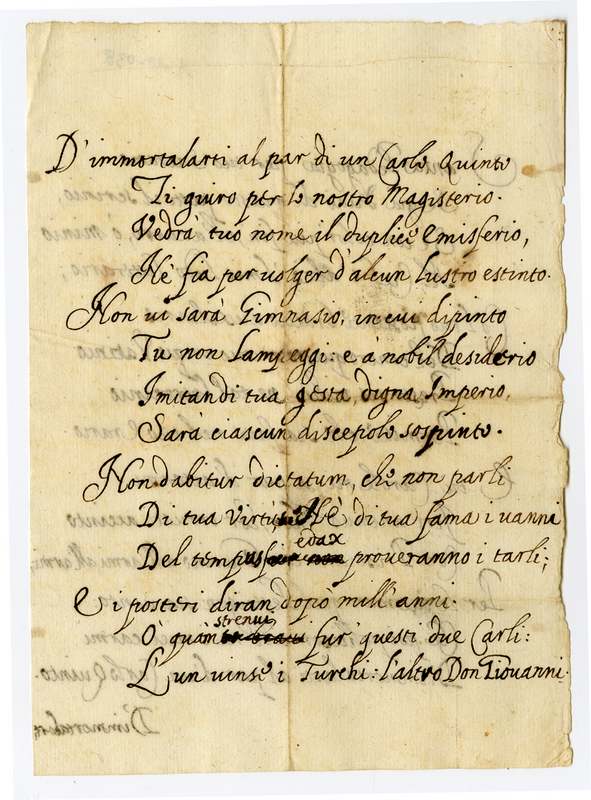 D'immortalarti al par di un Carlo Quinto
Ti giuro per lo nostro Magisterio.
Vedrà tuo nome il duplice emisferio,
Nè fia per volger d'alcun lustro estinto.
Non vi sarà Gimnasio, in cui dipinto
Tu non lampeggi: e à nobil desiderio
Imitandi tua gesta, digna Imperio,
Sarà ciascun discepolo sospinto.
Non dabitur dictatum, che non parli
Di tua virtù: Nè di tua fama i vanni
edax
Del tempus proveranno i tarli;
E i posteri diran dopò mill'anni.
strenui
O' quam fur' questi due Carli:
L'un vinse i Turchi: l'altro Don Giovanni.